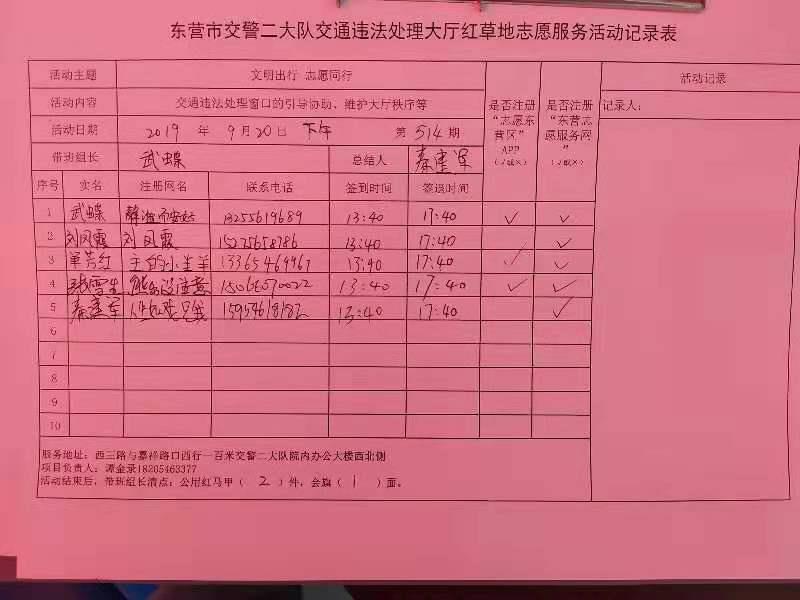 东营市交警二大队交通违法处理大厅红草地志愿服务活动记录表
活动主题 文明出行 志愿同行 是否注册“志愿东营区”APP（√或×） 是否注册“东营志愿服务网”（√或×） 活动记录
活动内容 交通违法处理窗口的引导协助、维护大厅秩序等 记录人:
活动日期 2019 年 9月20日 下午 第 514 期
带班组长 武蝶 总结人 秦建军
序号 实名 注册网名 联系电话 签到时间 签退时间
1 武蝶 13255619689 13:40 17:40 √ √
2 刘凤霞 刘凤霞 15275658786 13:40 17:40 √
3 单芳红 13365469967 13:40 17:40 √ √
4 张雪生 13:40 17:40 √ √
5 秦建军 15954618182 13:40 17:40 √
6
7
8
9
10
服务地址：西三路与嘉祥路口西行一百米交警二大队院内办公大楼西北侧
项目负责人：谭金录18205463377
活动结束后，带班组长清点：公用红马甲（ 2 ）件，会旗（ 1 ）面。